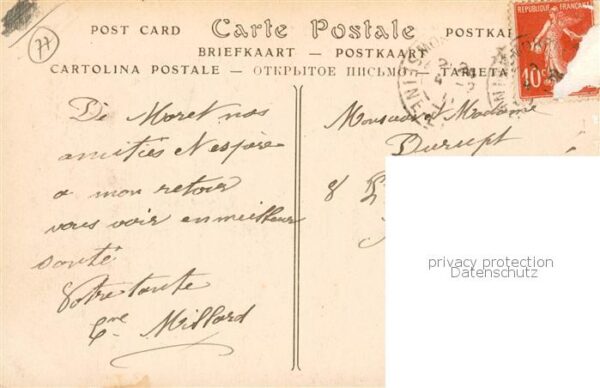 77
POST CARD Carte Postale POSTKA
BRIEFKAART — POSTKAART
CARTOLINA POSTALE — ОТКРЫТОЕ ПИСЬМО — TARJETA
REPUBLIQUE FRANÇAISE
10c
De Moret nos
amitiés J'espère
a mon retour
vous voir en meilleur
santé
Votre tante
Cne Millard
Monsieur & Madame
Durupt
8
privacy protection
Datenschutz